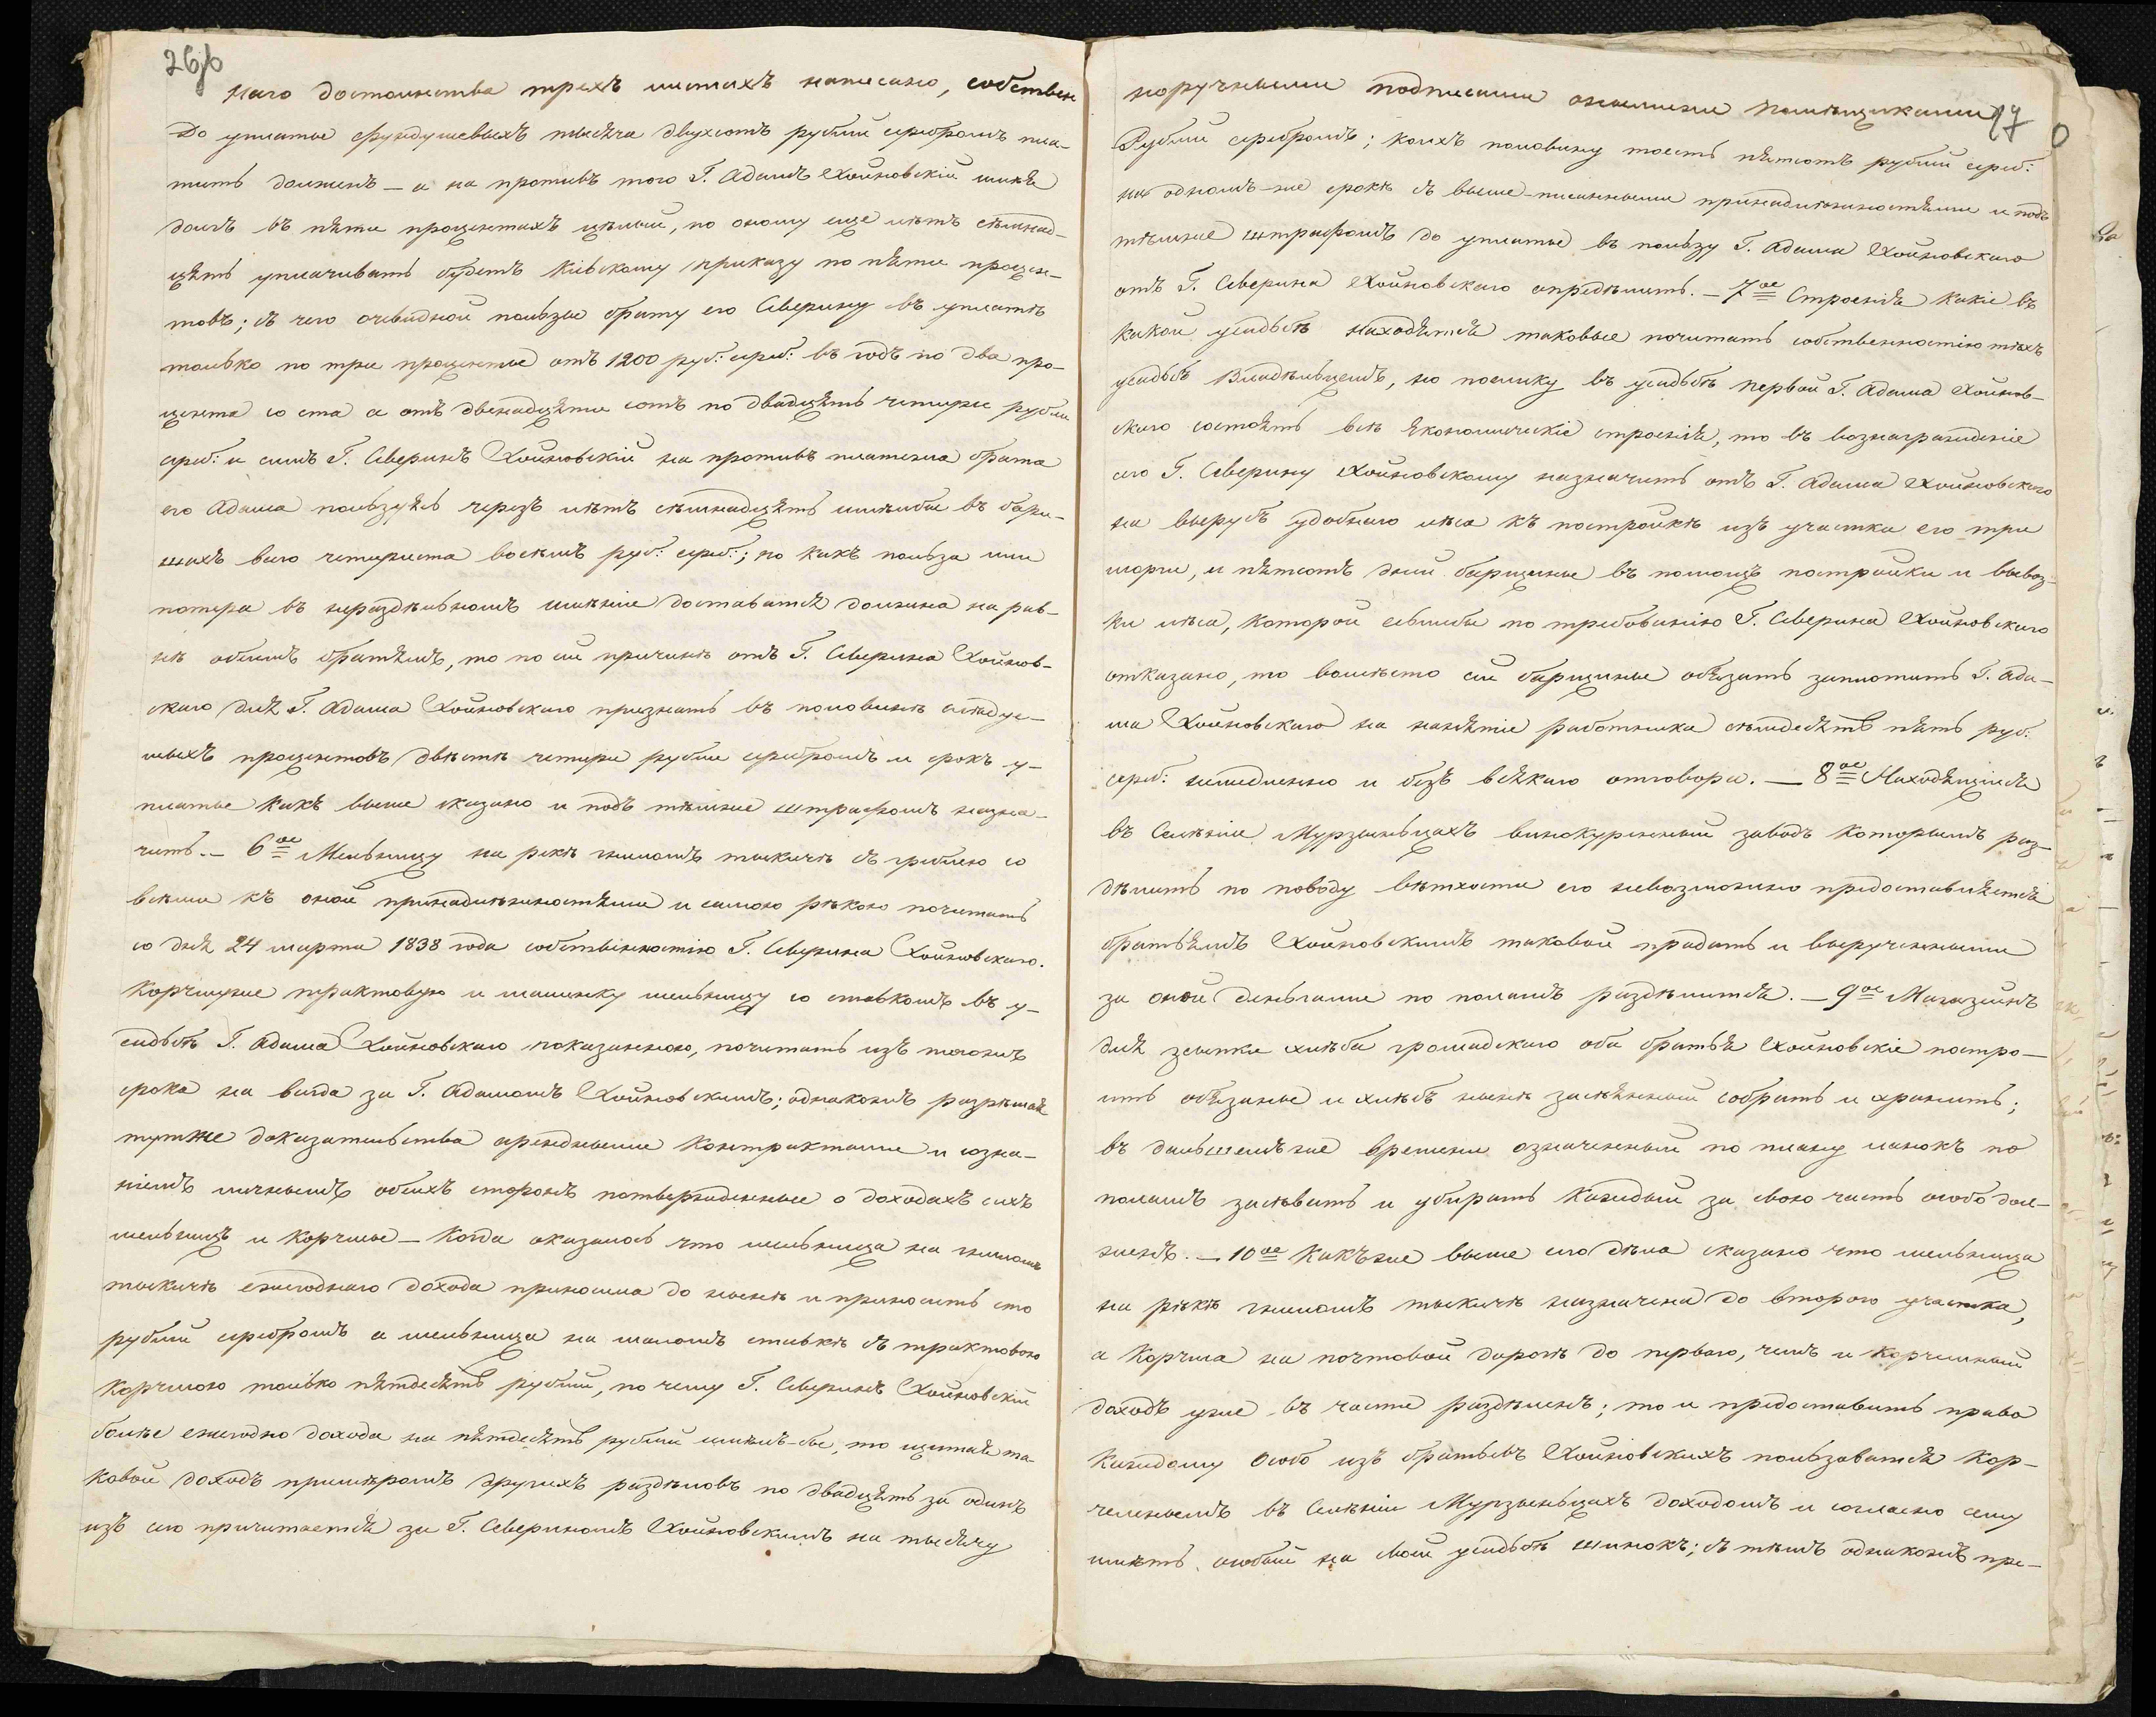 26/б
наго достоинства трехъ листахъ написано, собствен
до уплаты фундушевыхъ тысяча двухсотъ рублей серебромъ пла-
тить долженъ – а на противъ того Г. Адамъ Хойновскій имѣя
долгъ въ пяти процентахъ цѣлый, по оному еще лѣтъ семнад-
цять уплачивать будетъ Кіевскому приказу по пяти процен-
товъ; съ чего очевидной пользы брату его Северину въ уплатѣ
только по три проценты отъ 1200 руб: сереб: въ годъ по два про-
цента со ста а отъ двенадцяти сотъ по двадцять четыре рубли
сереб: и симъ Г. Северинъ Хойновскій на противъ платежа брата
его Адама пользуясь чрезъ лѣтъ сѣмнадцять имѣлбы въ бари-
шахъ всего четыриста восѣмъ руб: сереб:; но какъ польза или
потеря въ нераздѣльномъ имѣніе доставатся должна на рав-
нѣ обоимъ братямъ, то по сей причинѣ отъ Г. Северина Хойнов-
скаго для Г. Адама Хойновскаго признать въ половинѣ слѣдуе-
мыхъ процентовъ двѣстѣ четыри рубли серебромъ и срокъ у-
платы какъ выше сказано и подъ тѣмже штрафомъ назна-
чить. – 6ое Мельницу на рекѣ гниломъ тыкичѣ съ греблею со
всѣми къ оной принадлѣжностями и самою рѣкою почитать
со дня 24 марта 1838 года собственностію Г. Северина Хойновскаго.
Корчмуже трактовую и малинку мельницу со ставкомъ въ у-
садьбѣ Г. Адама Хойновскаго показанною, почитать изъ тогожъ
срока на всегда за Г. Адамомъ Хойновскимъ; однакожъ разрѣшая
тутже доказательства арендными контрактами и созна-
ніемъ личнымъ обоихъ сторонъ потвержденные о доходахъ сихъ
мельницъ и корчмы – Когда оказалось что мельница на гниломъ
тыкичѣ ежегоднаго дохода приносила до нынѣ и приноситъ сто
рублей серебромъ а мельница на маломъ ставкѣ съ трактовою
корчмою только пятдесятъ рублей, по чему Г. Северинъ Хойновскій
болѣе ежегодно дохода на пятдесятъ рублей имѣлъ-бы, то щитая та-
ковой доходъ примѣромъ другихъ раздѣловъ по двадцять за одинъ
изъ сего причитается за Г. Севериномъ Хойновскимъ на тысячу
норучными подписами онымиже помѣщиками
17
0
Рублей серебромъ; коихъ половину тоесть пятсотъ рублей сереб:
на одномъ-же срокѣ съ выше-писанными принадлѣжностями и подъ
тѣмже штрафомъ до уплаты въ пользу Г. Адама Хойновскаго
отъ Г. Северина Хойновскаго опредѣлить. – 7ое Строенія какіе въ
какой усадьбѣ находятся таковые почитать собственностію тѣхъ
усадьбъ владѣльцемъ, но поелику въ усадьбѣ первой Г. Адама Хойнов-
скаго состоятъ всѣ экономическіе строенія, то въ вознагражденіе
сего Г. Северину Хойновскому назначить отъ Г. Адама Хойновскаго
на вырубъ удобнаго лѣса къ постройкѣ изъ участка его три
морги, и пятсотъ дней барщины въ помощь постройки и вывоз-
ки лѣса, которой еслибы по требованію Г. Северина Хойновскаго
отказано, то вомѣсто сей барщины обязать заплотить Г. Ада-
ма Хойновскаго на нанятіе работника сѣмдесятъ пять руб:
сереб: немедленно и безъ всякаго отговора. – 8ое Находящійся
въ Селѣніи Мурзынцахъ винокуренный заводъ которымъ раз-
дѣлить по поводу вѣтхости его невозможно предоставляется
братьямъ Хойновскимъ таковой продать и вырученными
за оной деньгами по поламъ раздѣлится. – 9ое Магазынъ
для зсыпки хлѣба громадскаго оба братья Хойновскіе постро-
ить обязаны и хлѣбъ нынѣ засѣянный собрать и хранить;
въ дальшемъже времени означенный по плану ланокъ по
поламъ засѣвать и убирать каждый за свою часть особо дол-
женъ. – 10ое Какъже выше сего дѣла сказано что мельница
на рѣкѣ гниломъ тыкичѣ назначена до второго участка,
а Корчма на почтовой дорогѣ до перваго, чемъ и корчемный
доходъ уже въ части раздѣленъ; то и предоставить право
каждому особо изъ братьевъ Хойновскихъ пользоватся кор-
чемнымъ въ Селѣніи Мурзынцахъ доходомъ и согласно сему
имѣть особый на своей усадьбѣ шинокъ; съ тѣмъ однакожъ пре-